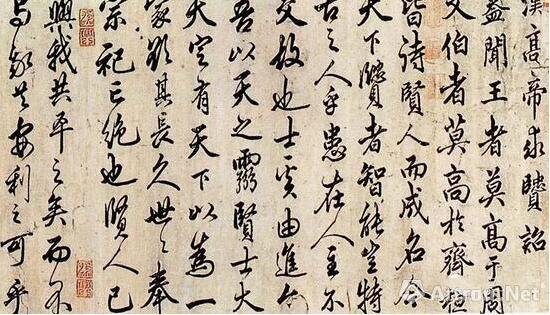 漢高帝求賢詔
蓋聞王者莫高于周
文伯者莫高於齊桓
皆待賢人而成名今
天下賢者智能豈特
古之人乎患在人主不
交故也士奚由進今
吾以天之靈賢士大
夫定有天下以為一
家欲其長久世々奉
宗祀亡絶也賢人已
與我共平之矣而不
與吾共安利之可乎
Artron.Net